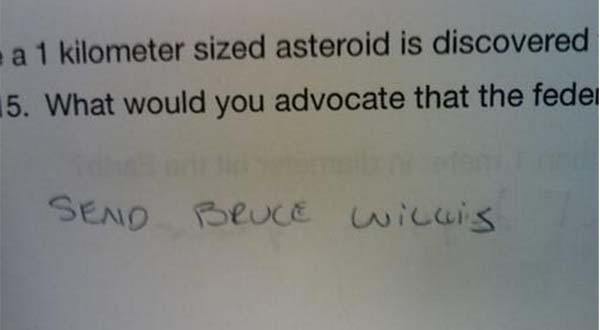 a 1 kilometer sized asteroid is discovered
15. What would you advocate that the feder
SEND BRUCE WILLIS